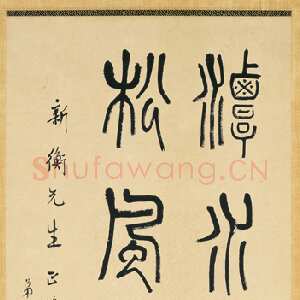 潭水
松風
新衡先生正
Shufawang.CN